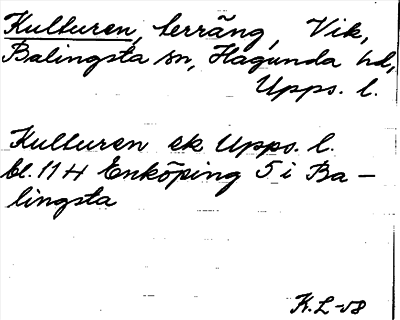 Kulturen, terräng, Vik,
Balingsta sn, Hagunda hd,
Upps. l.
Kulturen ek Upps. l.
bl. 11 H Enköping 5 i Ba-
lingsta
K.L-58